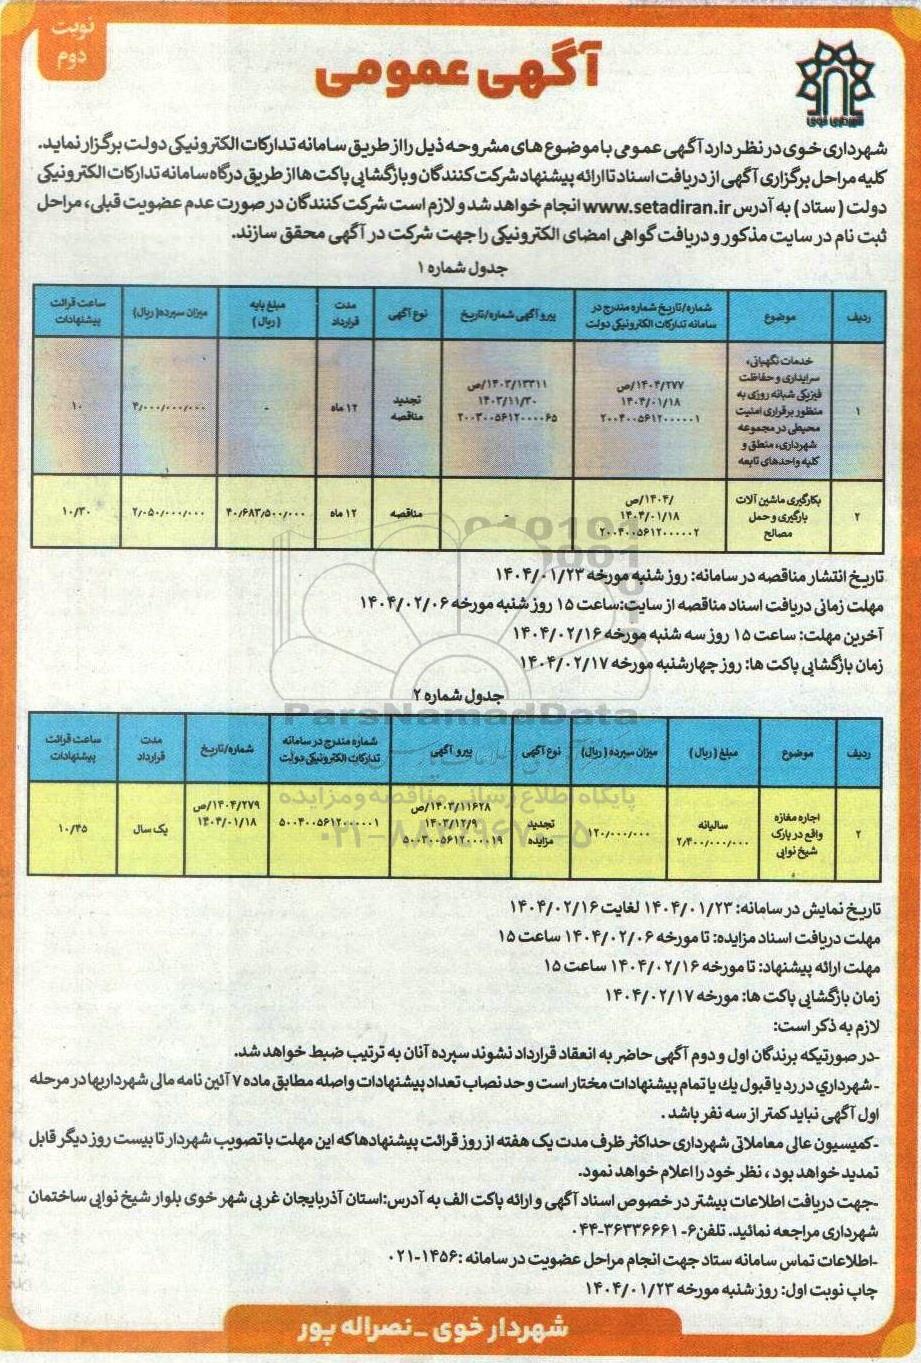 نوبت
دوم
آگهی عمومی
شهرداری خوی
شهرداری خوی در نظر دارد آگهی عمومی با موضوع های مشروحه ذیل را از طریق سامانه تدارکات الکترونیکی دولت برگزار نماید.
کلیه مراحل برگزاری آگهی از دریافت اسناد تا ارائه پیشنهاد شرکت کنندگان و بازگشایی پاکت ها از طریق درگاه سامانه تدارکات الکترونیکی
دولت ( ستاد ) به آدرس www.setadiran.ir انجام خواهد شد و لازم است شرکت کنندگان در صورت عدم عضویت قبلی، مراحل
ثبت نام در سایت مذکور و دریافت گواهی امضای الکترونیکی را جهت شرکت در آگهی محقق سازند.
جدول شماره ۱
ردیف
موضوع
شماره/تاریخ شماره مندرج در
سامانه تدارکات الکترونیکی دولت
پیرو آگهی شماره/تاریخ
نوع آگهی
مدت
قرارداد
مبلغ پایه
( ریال )
میزان سپرده( ریال)
ساعت قرائت
پیشنهادات
۱
خدمات نگهبانی،
سرایداری و حفاظت
فیزیکی شبانه روزی به
منظور برقراری امنیت
محیطی در مجموعه
شهرداری، مناطق و
کلیه واحدهای تابعه
۱۴۰۴/۲۷۷/ص
۱۴۰۴/۰۱/۱۸
۲۰۰۴۰۰۵۶۱۲۰۰۰۰۰۱
۱۴۰۳/۱۳۳۱۱/ص
۱۴۰۳/۱۱/۳۰
۲۰۰۳۰۰۵۶۱۲۰۰۰۰۶۵
تجدید
مناقصه
۱۲ ماه
-
۴/۰۰۰/۰۰۰/۰۰۰
۱۰
۲
بکارگیری ماشین آلات
بارگیری و حمل
مصالح
/۱۴۰۴/ص
۱۴۰۴/۰۱/۱۸
۲۰۰۴۰۰۵۶۱۲۰۰۰۰۰۲
-
مناقصه
۱۲ ماه
۴۰/۶۸۳/۵۰۰/۰۰۰
۲/۰۵۰/۰۰۰/۰۰۰
۱۰/۳۰
تاریخ انتشار مناقصه در سامانه: روز شنبه مورخه ۱۴۰۴/۰۱/۲۳
مهلت زمانی دریافت اسناد مناقصه از سایت:ساعت ۱۵ روز شنبه مورخه ۱۴۰۴/۰۲/۰۶
آخرین مهلت: ساعت ۱۵ روز سه شنبه مورخه ۱۴۰۴/۰۲/۱۶
زمان بازگشایی پاکت ها: روز چهارشنبه مورخه ۱۴۰۴/۰۲/۱۷
جدول شماره ۲
ParsNamadData
پایگاه اطلاع رسانی مناقصه و مزایده
۰۲۱-۸۸۳۴۹۶۷۰-۵
ردیف
موضوع
مبلغ ( ریال)
میزان سپرده ( ریال)
نوع آگهی
پیرو آگهی
شماره مندرج در سامانه
تدارکات الکترونیکی دولت
شماره/تاریخ
مدت
قرارداد
ساعت قرائت
پیشنهادات
۲
اجاره مغازه
واقع در پارک
شیخ نوایی
سالیانه
۲/۴۰۰/۰۰۰/۰۰۰
۱۲۰/۰۰۰/۰۰۰
تجدید
مزایده
۱۴۰۳/۱۱۶۲۸/ص
۱۴۰۳/۱۲/۹
۵۰۰۳۰۰۵۶۱۲۰۰۰۰۱۹
۵۰۰۴۰۰۵۶۱۲۰۰۰۰۰۱
۱۴۰۴/۲۷۹/ص
۱۴۰۴/۰۱/۱۸
یک سال
۱۰/۴۵
تاریخ نمایش در سامانه: ۱۴۰۴/۰۱/۲۳ لغایت ۱۴۰۴/۰۲/۱۶
مهلت دریافت اسناد مزایده: تا مورخه ۱۴۰۴/۰۲/۰۶ ساعت ۱۵
مهلت ارائه پیشنهاد: تا مورخه ۱۴۰۴/۰۲/۱۶ ساعت ۱۵
زمان بازگشایی پاکت ها: مورخه ۱۴۰۴/۰۲/۱۷
لازم به ذکر است:
-در صورتیکه برندگان اول و دوم آگهی حاضر به انعقاد قرارداد نشوند سپرده آنان به ترتیب ضبط خواهد شد.
- شهرداري در رد یا قبول یك یا تمام پیشنهادات مختار است و حد نصاب تعداد پیشنهادات واصله مطابق ماده ۷ آئین نامه مالی شهرداریها در مرحله
اول آگهی نباید کمتر از سه نفر باشد .
-کمیسیون عالی معاملاتی شهرداری حداکثر ظرف مدت یک هفته از روز قرائت پیشنهادها که این مهلت با تصویب شهردار تا بیست روز دیگر قابل
تمدید خواهد بود ، نظر خود را اعلام خواهد نمود.
-جهت دریافت اطلاعات بیشتر در خصوص اسناد آگهی و ارائه پاکت الف به آدرس:استان آذربایجان غربی شهر خوی بلوار شیخ نوایی ساختمان
شهرداری مراجعه نمائید. تلفن۶- ۳۶۳۳۶۶۶۱-۰۴۴
-اطلاعات تماس سامانه ستاد جهت انجام مراحل عضویت در سامانه :۱۴۵۶-۰۲۱
چاپ نوبت اول: روز شنبه مورخه ۱۴۰۴/۰۱/۲۳
شهردار خوی _نصراله پور